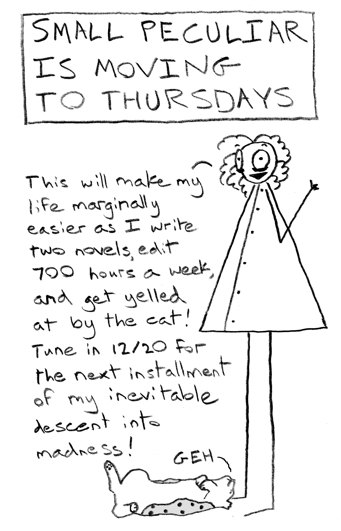 SMALL PECULIAR
IS MOVING
TO THURSDAYS
This will make my
life marginally
easier as I write
two novels, edit
700 hours a week,
and get yelled
at by the cat!
Tune in 12/20 for
the next installment
of my inevitable
descent into
madness!
GEH